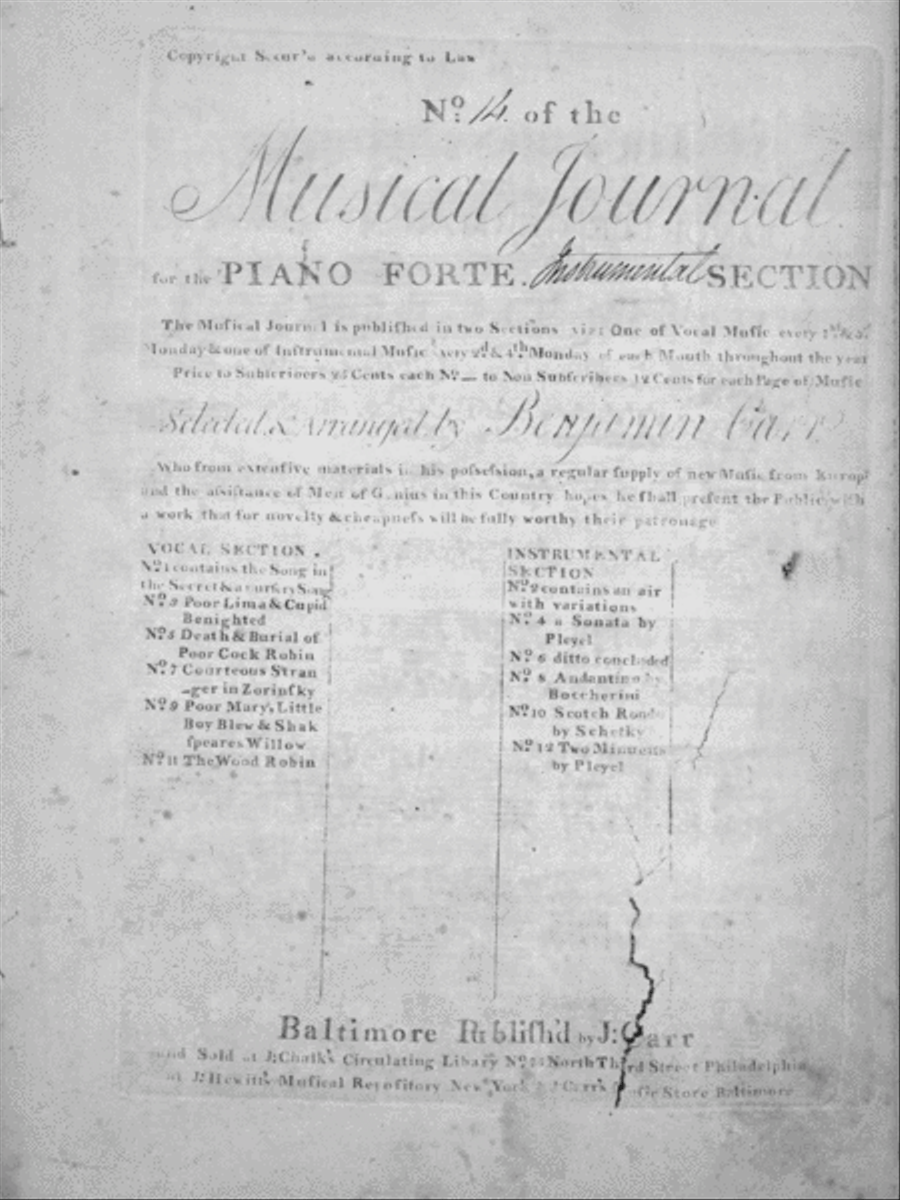 Copyright Secur'd according to Law
No. 14. of the
Musical Journal
for the PIANO FORTE. Instrumental SECTION
The Muſical Journal is publiſhed in two Sections viz: One of Vocal Muſic every 1st & 3d
Monday & one of Inſtrumental Muſic every 2d & 4th Monday of each Month throughout the year
Price to Subſcribers 25 Cents each No. — to Non Subſcribers 12 Cents for each Page of Muſic
Selected & Arranged by Benjamin Carr
Who from extenſive materials in his poſseſsion, a regular ſupply of new Muſic from Europe
and the aſsiſtance of Men of Genius in this Country hopes he ſhall preſent the Public with
a work that for novelty & cheapneſs will be fully worthy their patronage
VOCAL SECTION.
No. 1 contains the Song in
the Secret & a nurſery Song
No. 3 Poor Lima & Cupid
Benighted
No. 5 Death & Burial of
Poor Cock Robin
No. 7 Courteous Stran
-ger in Zorinſky
No. 9 Poor Mary, Little
Boy Blew & Shak
ſpeares Willow
No. 11 The Wood Robin
INSTRUMENTAL
SECTION
No. 2 contains an air
with variations
No. 4 a Sonata by
Pleyel
No. 6 ditto concluded
No. 8 Andantino by
Boccherini
No. 10 Scotch Rondo
by Schetky
No. 12 Two Minuetts
by Pleyel
Baltimore Publiſh'd by J: Carr
and Sold at J: Chalk's Circulating Libary No. North Third Street Philadelphia
at J: Hewitt's Muſical Repoſitory New York & J Carr's Muſic Store Baltimore